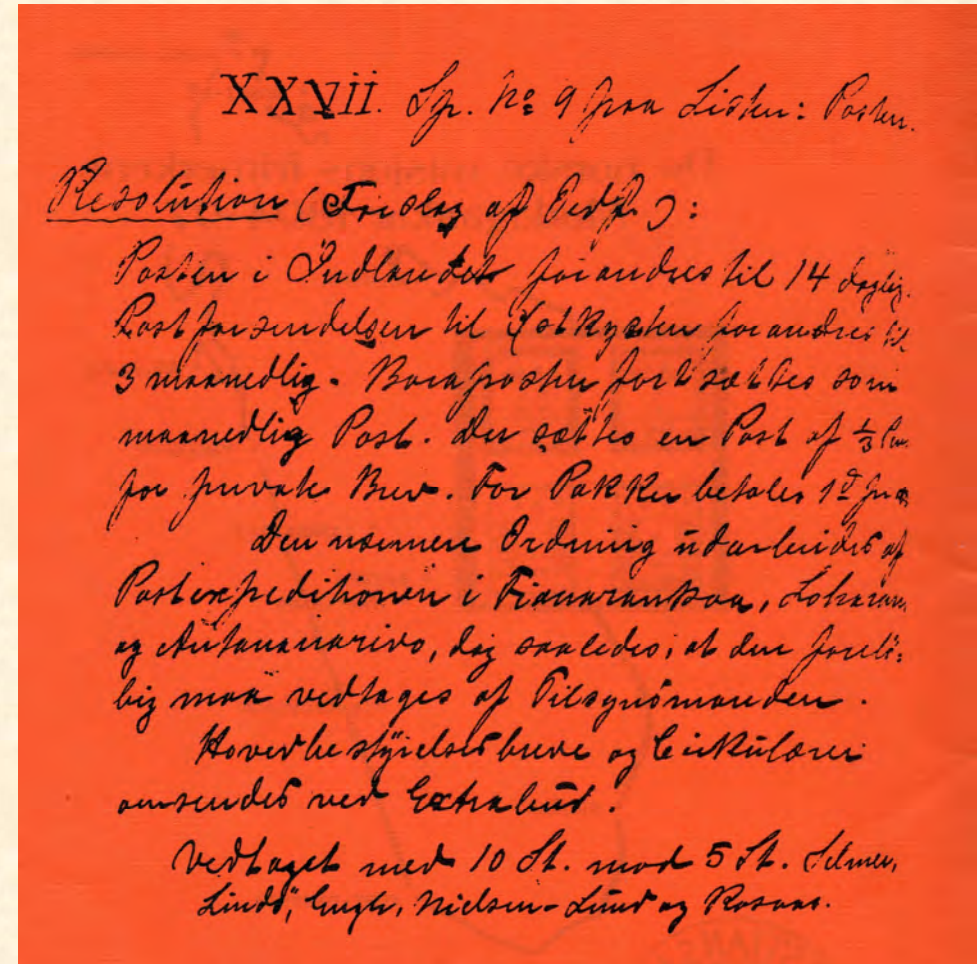 XXVII. Sp. No 9 fraa Listen: Posten.
Resolution (Forslag af Ordf.):
Posten i Indlandet forandres til 14 daglig.
Postforsendelsen til Østkysten forandres til
3 maanedlig. Baraposten fortsættes som
maanedlig Post. Der sættes en Post af 1/3
for private Brev. For Pakker betales 1d
Den nærmere Ordning udarbeides af
Postexpeditionen i Fianarantsoa,
og Antananarivo, dog saaledes, at den forelö-
big maa vedtages af Tilsynsmanden.
Hovedbestyrelsesbreve og Cirkulærer
omsendes ved Extrabud.
Vedtaget med 10 St. mod 5 St. Selmer,
Lindö, Engh, Nielsen-Lund og Rosaas.